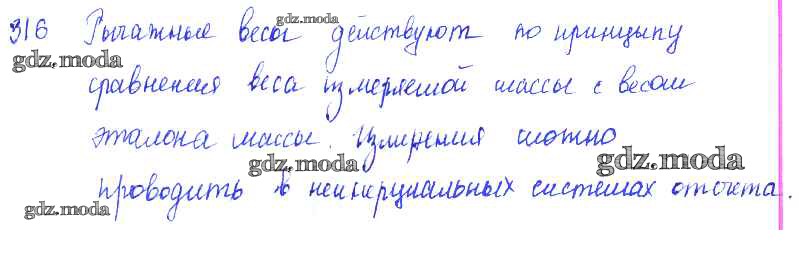 gdz.moda
316 Рычажные весы действуют по принцыпу
gdz.moda
сравнения веса измеряемой массы с весом
gdz.moda
эталона массы. Измерения можно
gdz.moda gdz.moda
проводить в неинерциальных системах отсчета.
gdz.moda